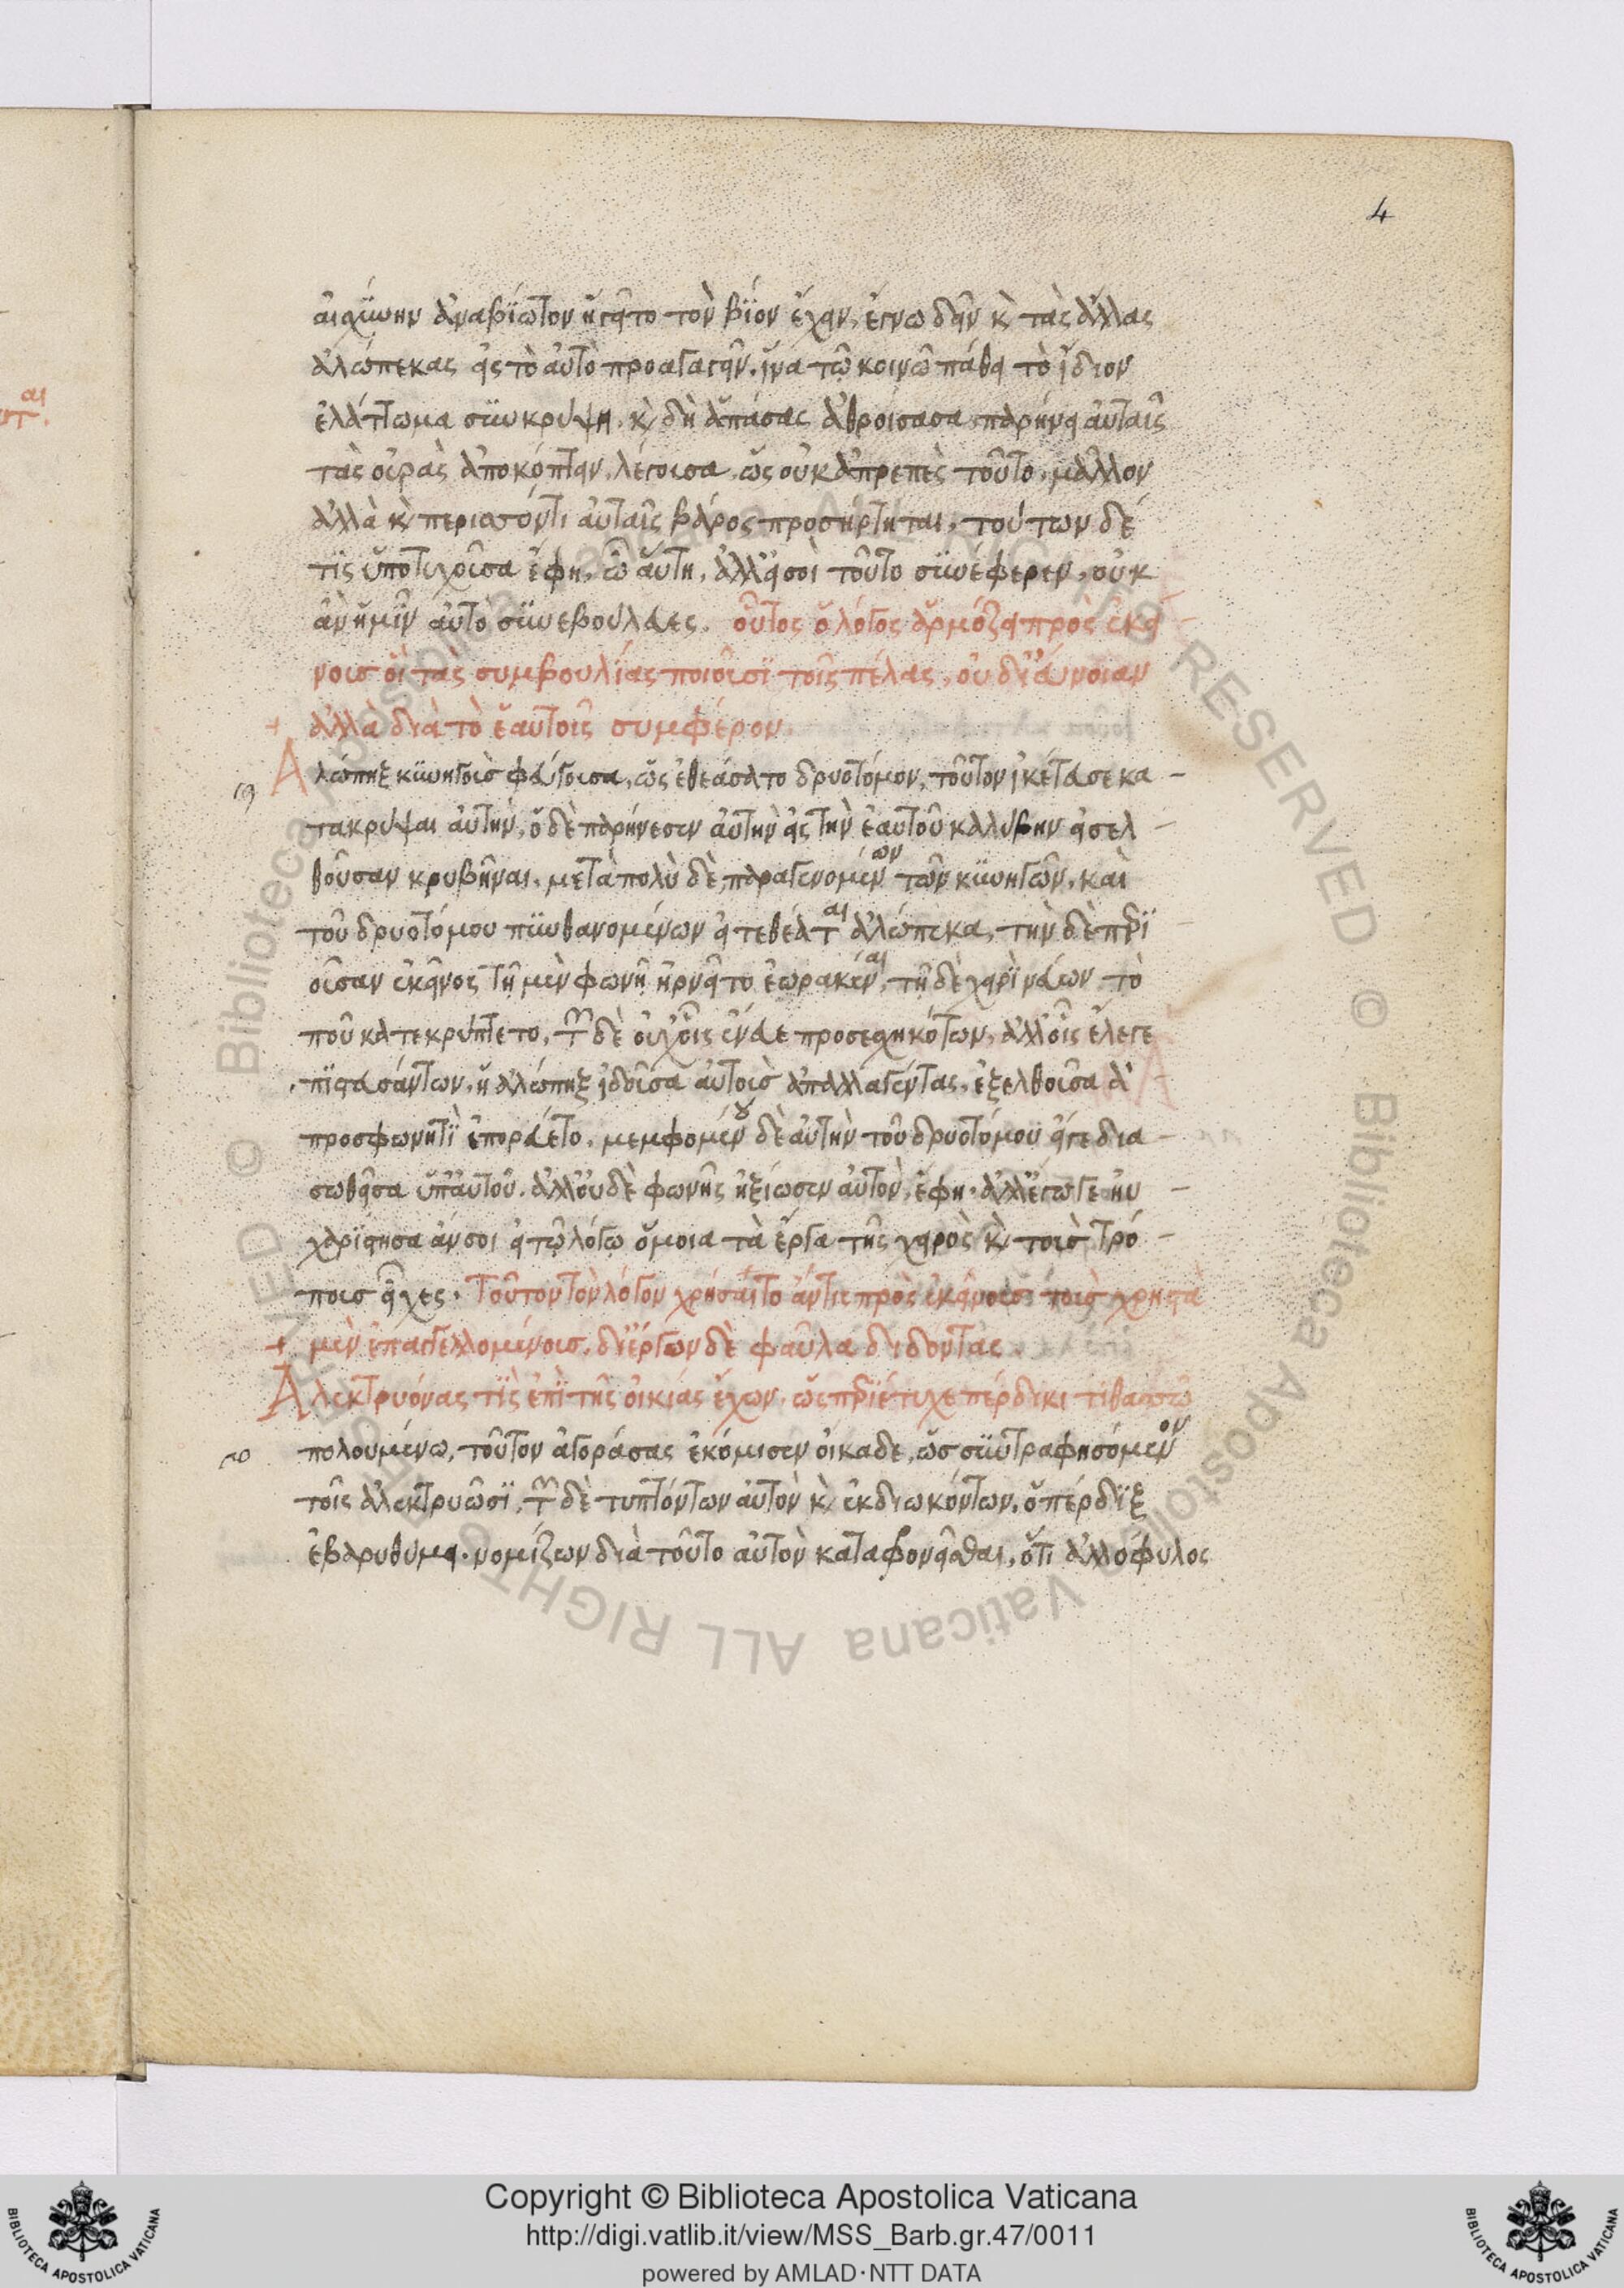 4
αἰσχύνην ἀναβίωτον ἡγεῖτο τὸν βίον ἔχειν, ἔγνω δεῖν κὲ τὰς ἄλλας
ἀλώπεκας εἰς τὸ αὐτὸ προαγαγεῖν. ἵνα τῶ κοινῶ πάθει τὸ ἴδιον
ἐλάττωμα συνκρύψη. κὲ δὴ ἁπάσας ἀθροίσασα παρήνει αὐταῖς
τὰς οὐρὰς ἀποκόπτειν, λέγουσα, ὡς οὐκ ἀπρεπὲς τοῦτο, μᾶλλον
ἀλλὰ κὲ περισσόν τι αὐταῖς βάρος προσήρτηται. τούτων δέ
τις ὑποτυχοῦσα ἔφη, ὦ αὕτη, ἀλλ' εἰ σοὶ τοῦτο συνέφερεν, οὐκ
ἂν ἡμῖν αὐτὸ συνεβούλευες. οὗτος ὁ λόγος ἁρμόζει πρὸς ἐκεί
νους οἳ τὰς συμβουλίας ποιοῦσι τοῖς πέλας, οὐ δι' εὔνοιαν
+ ἀλλὰ διὰ τὸ ἑαυτοῖς συμφέρον.
Ἀλώπηξ κυνηγοὺς φεύγουσα, ὡς ἐθεάσατο δρυοτόμον, τοῦτον ἱκέτευσε κα –
τακρύψαι αὐτήν, ὁ δὲ παρήνεσεν αὐτὴν εἰς τὴν ἑαυτοῦ καλύβην εἰσελ –
θοῦσαν κρυβῆναι. μετὰ πολὺ δὲ, παραγενομένων τῶν κυνηγῶν, καὶ
τοῦ δρυοτόμου πυνθανομένων εἰ τεθέαται ἀλώπεκα, τὴν δὲ πρι
οῦσαν ἐκεῖνος τῆ μὲν φωνῆ ἠρνεῖτο ἑωρακέναι, τῆ δὲ χειρὶ νεύων τὸ
ποῦ κατεκρύπτετο, τῶν δὲ οὐχ οἷς ἔνευε προσεσχηκότων, ἀλλ' οἷς ἔλεγε
πιστευσάντων, ἡ ἀλώπηξ ἰδοῦσα αὐτοὺς ἀπαλλαγέντας, ἐξελθοῦσα ἀ
προσφωνητὶ ἐπορεύετο. μεμφομένου δὲ αὐτὴν τοῦ δρυοτόμου εἴγε δια –
σωθεῖσα ὑπ' αὐτοῦ. ἀλλ' οὐδὲ φωνῆς ἠξίωσεν αὐτὸν, ἔφη. ἀλλ' ἔγωγε ην –
χαρίστησα ἄν σοι εἰ τῶ λόγω ὅμοια τὰ ἔργα τῆς χειρὸς κὲ τοὺς τρό –
πους εἶχες. Τοῦτον τὸν λόγον χρήσαιτο ἄν τις πρὸς ἐκείνους τοὺς χρηστὰ
+ μὲν ἐπαγγελλομένους, δι' ἔργων δὲ φαῦλα διδόντας.
Ἀλεκτρυόνας τὶς ἐπὶ τῆς οἰκίας ἔχων, ὡς πριέτυχε πέρδικι τιθασσῶ
πολουμένω, τοῦτον ἀγοράσας ἐκόμισεν οἴκαδε, ὡς συντραφησόμενον
τοῖς ἀλεκτρυῶσι, τῶν δὲ τυπτόντων αὐτὸν κὲ ἐκδιωκόντων, ὁ πέρδιξ
ἐβαρυθύμει. νομίζων διὰ τοῦτο αὐτὸν καταφρονεῖσθαι, ὅτι ἀλλόφυλος
Copyright © Biblioteca Apostolica Vaticana
http://digi.vatlib.it/view/MSS_Barb.gr.47/0011
powered by AMLAD·NTT DATA